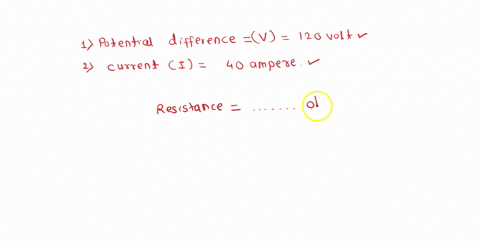 1) Potential difference =(V) = 120 volt ✓
2) current (I) = 40 ampere. ✓
Resistance = ....... ol